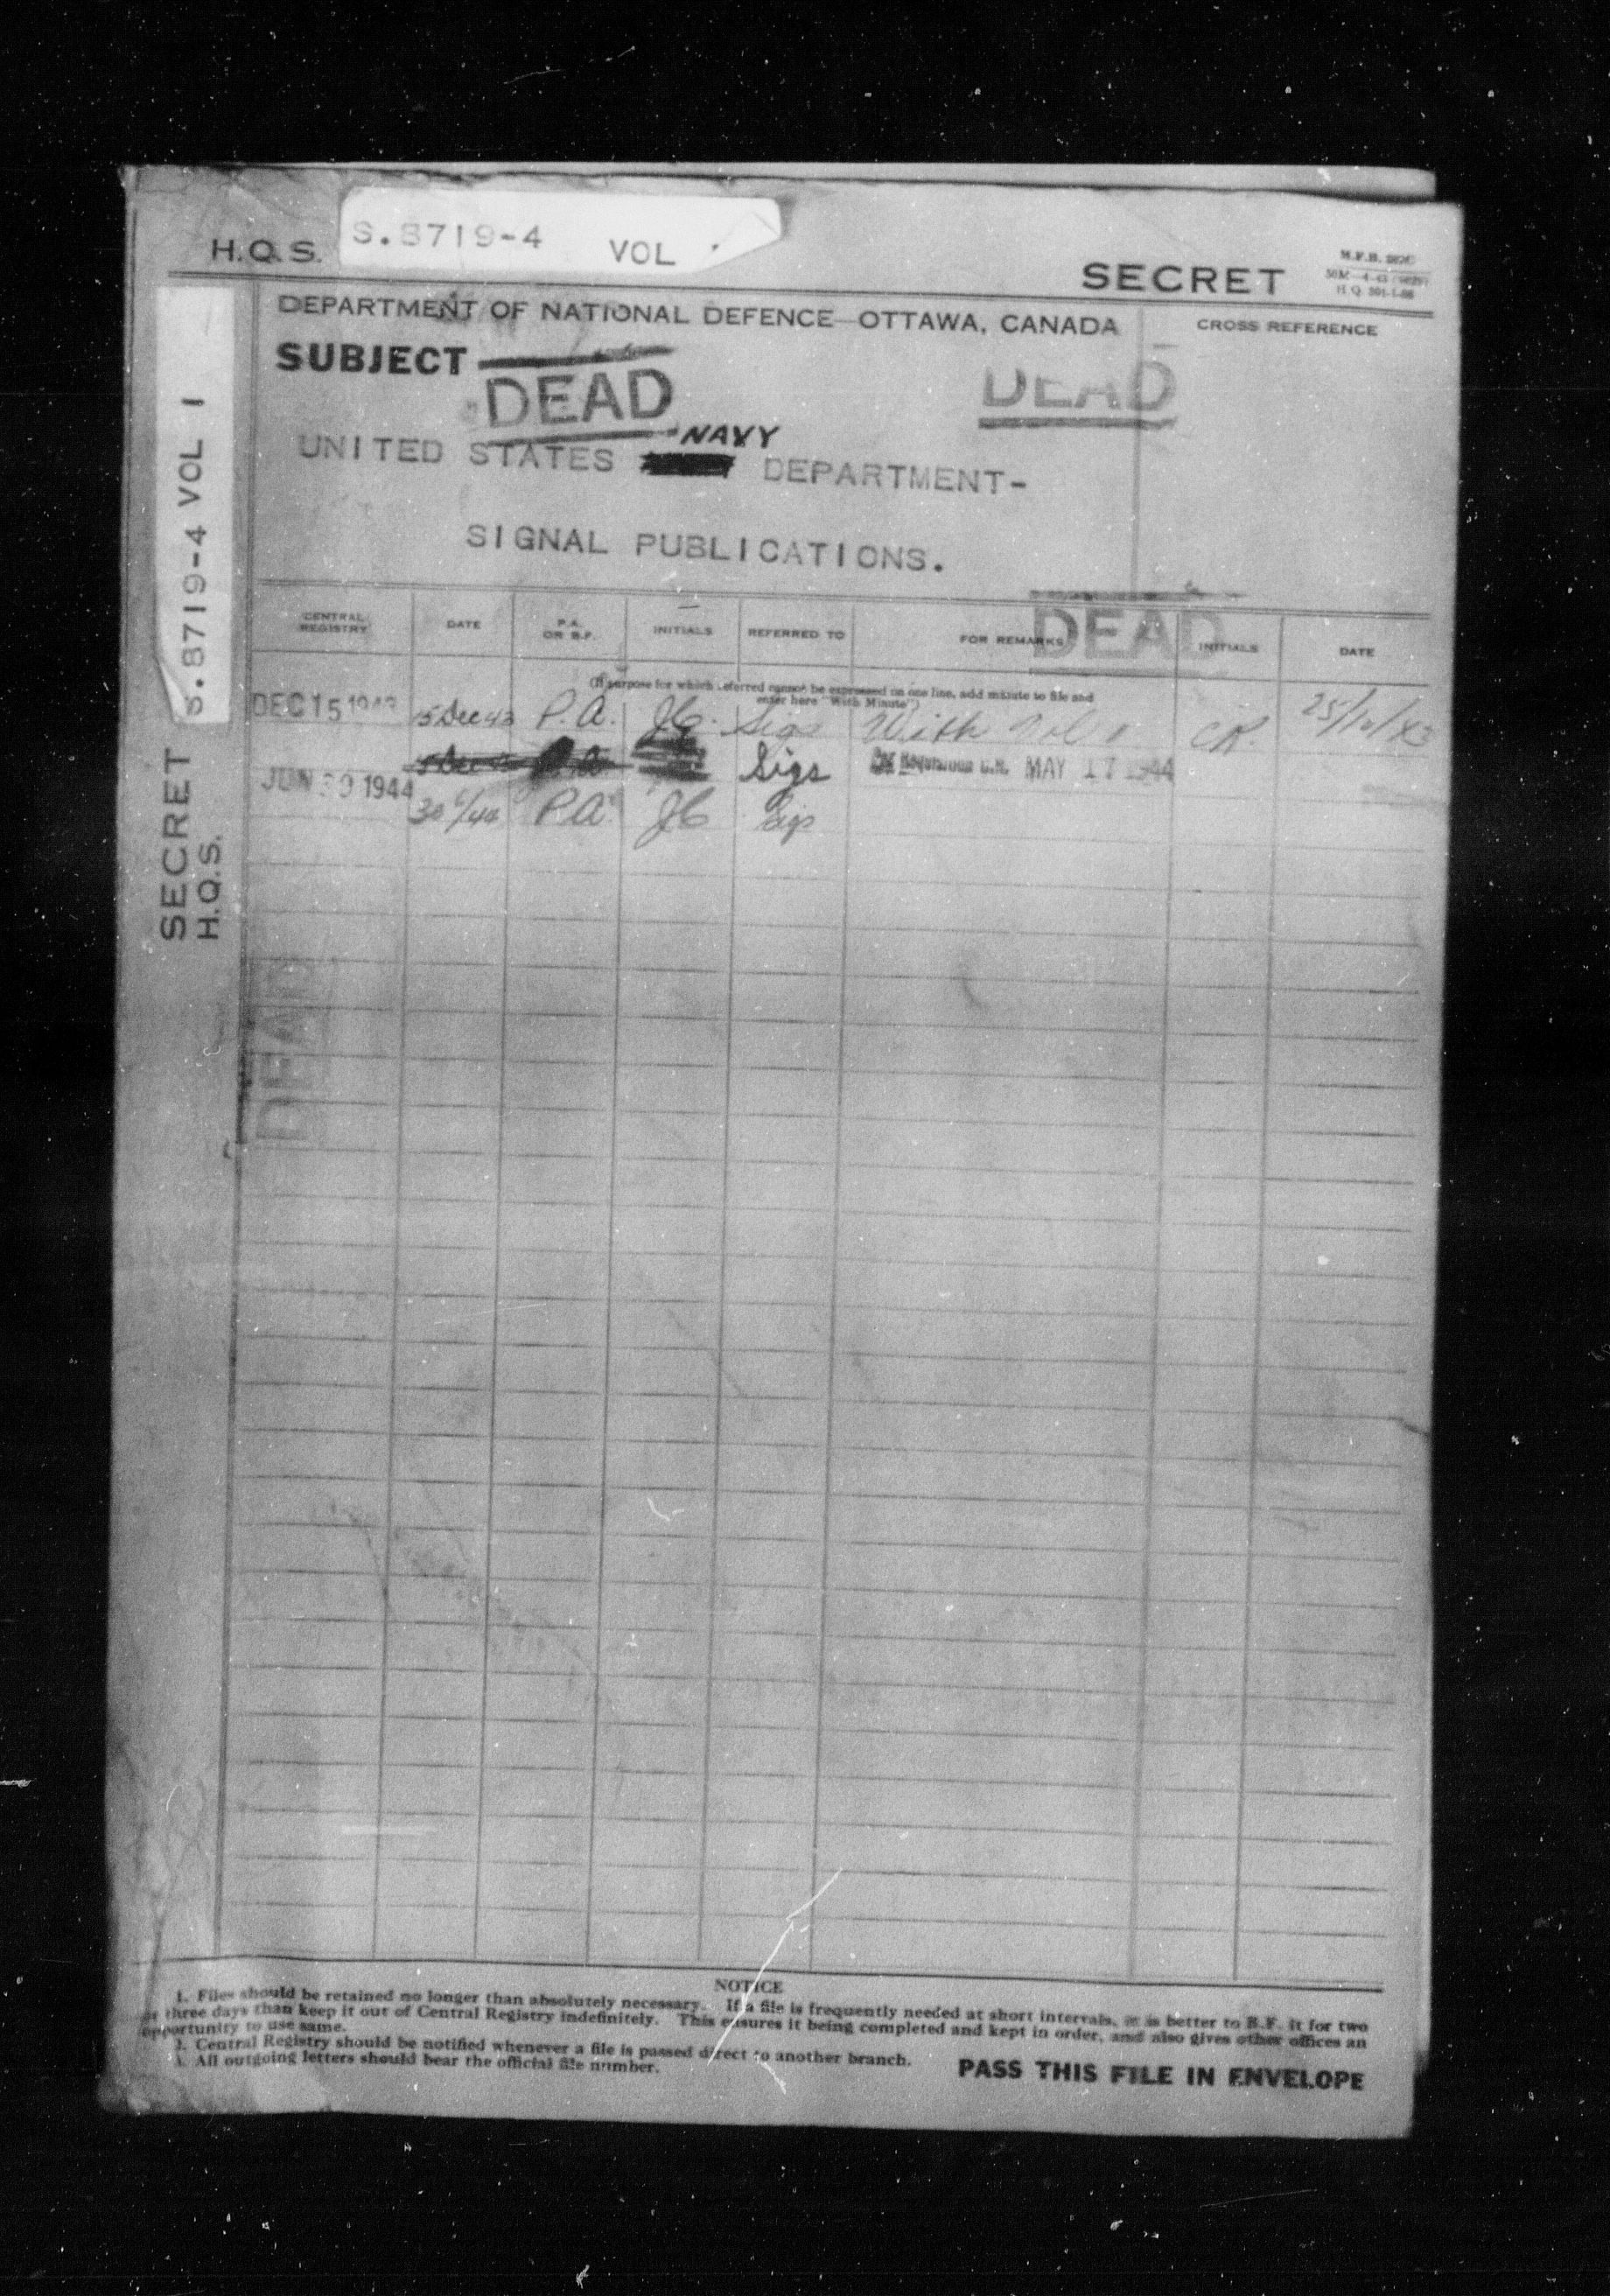 H.Q.S. S.8719-4 VOL
SECRET
DEPARTMENT OF NATIONAL DEFENCE—OTTAWA, CANADA
CROSS REFERENCE
SUBJECT
DEAD
DEAD
NAVY
UNITED STATES DEPARTMENT-
SIGNAL PUBLICATIONS.
DEAD
CENTRAL REGISTRY DATE P.A. OR B.F. INITIALS REFERRED TO FOR REMARKS INITIALS DATE
(If purpose for which referred cannot be expressed on one line, add minute to file and
enter here "With Minute")
DEC 15 1943 15 Dec 43 P.A. JC. Sigs With CR.
Sigs MAY 17 1944
JUN 30 1944
30/6/44 P.A. JC Sigs
S.8719-4 VOL 1
SECRET
H.Q.S.
DEAD
NOTICE
1. Files should be retained no longer than absolutely necessary. If a file is frequently needed at short intervals, it is better to B.F. it for two
or three days than keep it out of Central Registry indefinitely. This ensures it being completed and kept in order, and also gives other offices an
opportunity to use same.
2. Central Registry should be notified whenever a file is passed direct to another branch.
3. All outgoing letters should bear the official file number.
PASS THIS FILE IN ENVELOPE